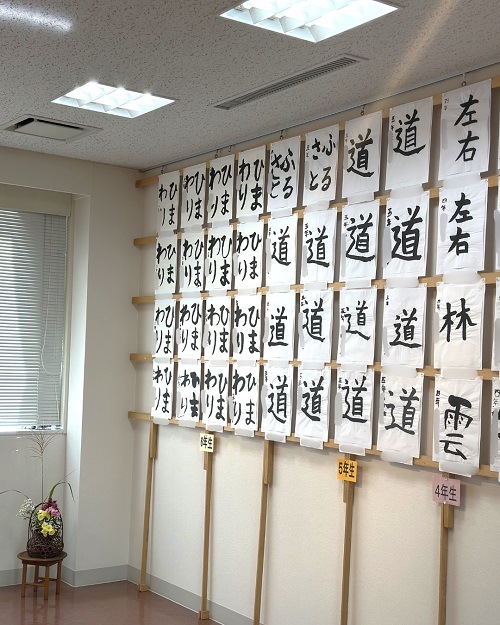 ひま
わり
ひま
わり
ひま
わり
ひま
わり
ふる
さと
ふる
さと
道
道
左右
ひま
わり
ひま
わり
ひま
わり
ひま
わり
道
道
道
道
左右
ひま
わり
ひま
わり
ひま
わり
ひま
わり
道
道
道
道
林
ひま
わり
ひま
わり
ひま
わり
ひま
わり
道
道
道
道
雲
6年生
5年生
4年生